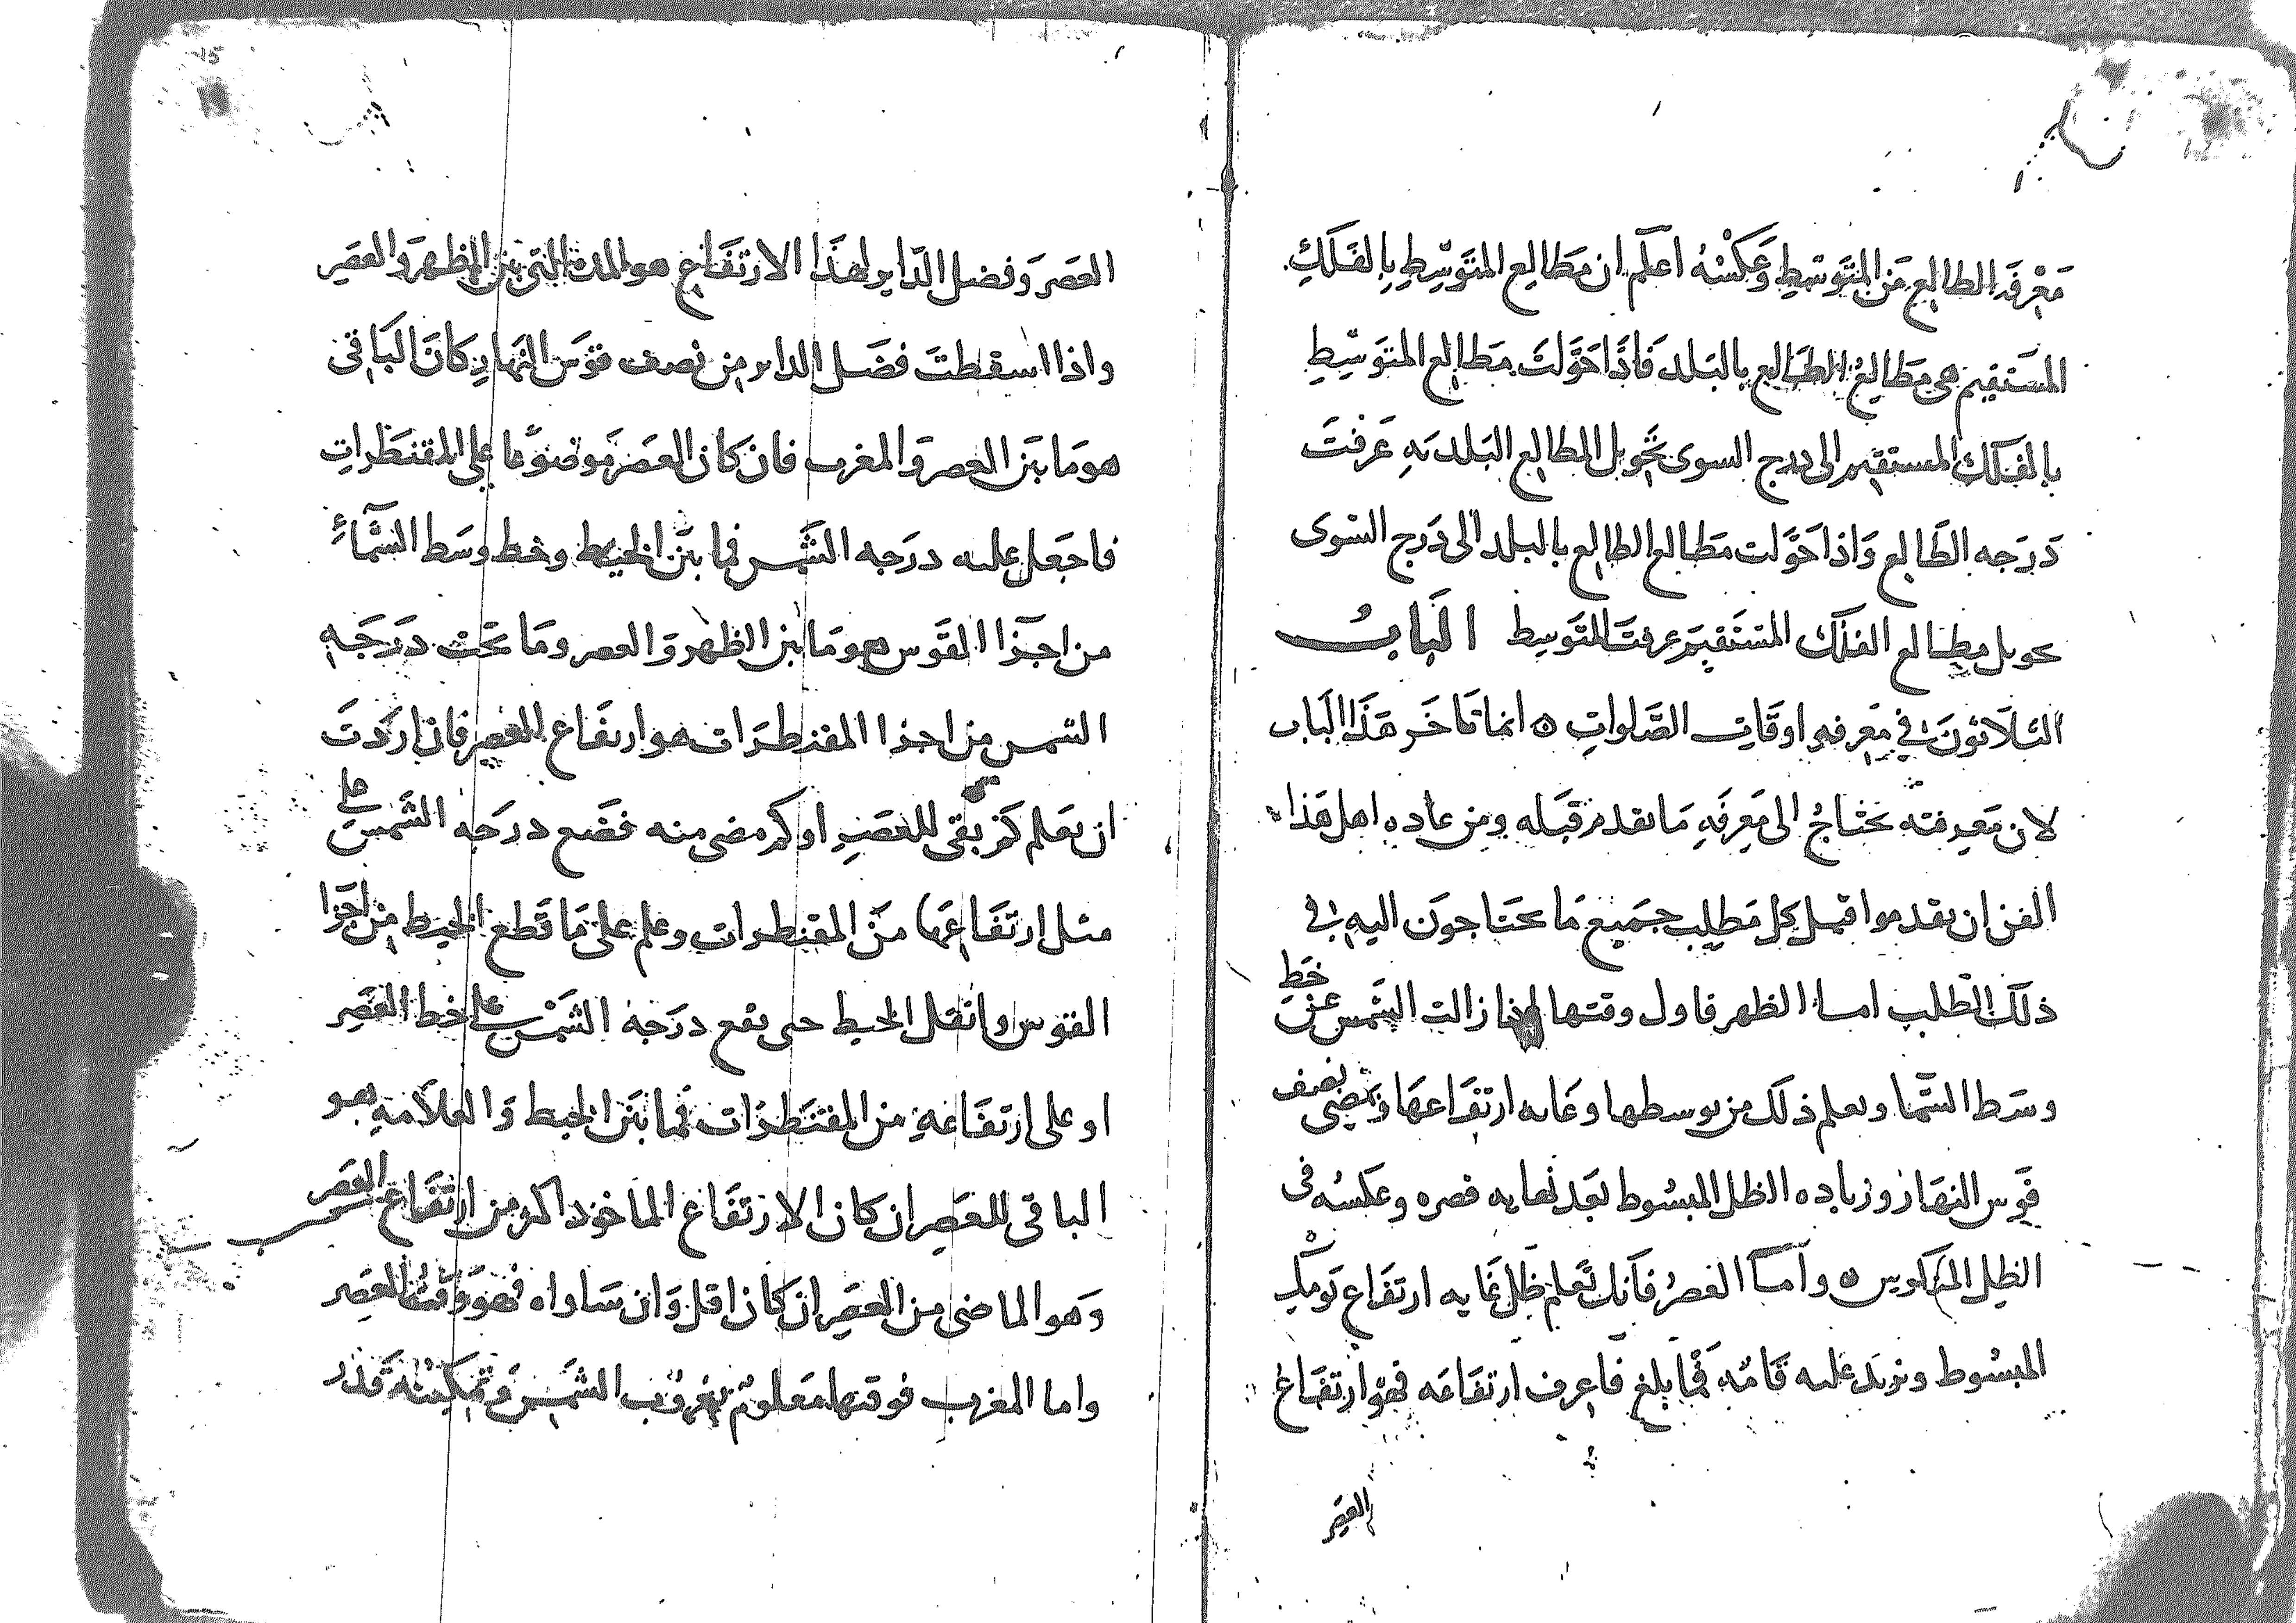 معرفة الطالع من المتوسط وعكسه اعلم ان مطالع المتوسط بالفلك
المستقيم هي مطالع الطالع بالبلد فاذا حولت مطالع المتوسط
بالفلك المستقيم الى درج السوى تحويل المطالع البلديه عرفت
درجه الطالع واذا حولت مطالع الطالع بالبلد الى درج السوى
تحويل مطالع الفلك المستقيم عرفت المتوسط الباب
الثلاثون في معرفه اوقات الصلوات ٥ انما تاخر هذا الباب
لان معرفته تحتاج الى معرفه ما تقدم قبله ومن عاده اهل هذا
الفن ان يقدموا قبل كل مطلب جميع ما يحتاجون اليه في
ذلك الطلب اما الظهر فاول وقتها اذا زالت الشمس عن خط
وسط السما ويعلم ذلك من توسطها وغايه ارتفاعها ومضى نصف
قوس النهار وزياده الظل المبسوط بعد نهايه قصره وعكسه في
الظل المنكوس ٥ واما العصر فانك تعلم ظل غايه ارتفاع يومك
المبسوط وتزيد عليه قامه فما بلغ فاعرف ارتفاعه فهو ارتفاع
العصر
العصر وفضل الداير لهذا الارتفاع هو المدة التي بين الظهر والعصر
واذا اسقطت فضل الداير من نصف قوس النهار كان الباقي
هو ما بين العصر والمغرب فان كان العصر موضوعا على المقنطرات
فاجعل عليه درجه الشمس فما بين الخيط وخط وسط السماء
من اجزا القوس هو ما بين الظهر والعصر وما تحت درجه
الشمس من اجزا المقنطرات هو ارتفاع العصر فان اردت
ان تعلم كم بقى للعصر او كم مضى منه فضع درجه الشمس على
مثل ارتفاعها من المقنطرات وعلم على ما قطع الخيط من اجزا
القوس وانقل الخيط حتى يقع درجه الشمس على خط العصر
او على ارتفاعه من المقنطرات فما بين الخيط والعلامه هو
الباقي للعصر ان كان الارتفاع الماخوذ اكثر من ارتفاع العصر
وهو الماضى من العصر ان كان اقل وان ساواه فهو وقت العصر
واما المغرب فوقتها معلوم بغروب الشمس وتمكينه قدر